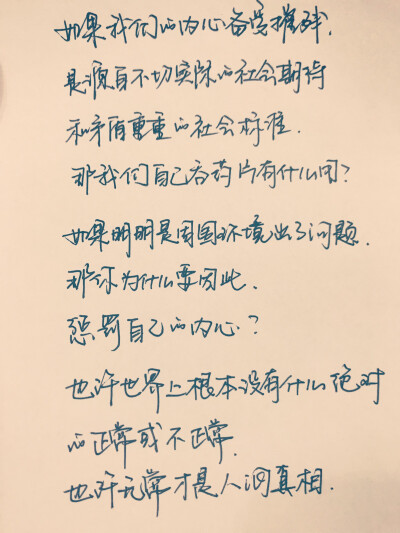 如果我们的内心备受摧残.
是源自不切实际的社会期待
和矛盾重重的社会标准.
那我们自己吞药片有什么用?
如果明明是周围环境出了问题.
那你为什么要因此.
惩罚自己的内心?
也许世界上根本没有什么绝对
的正常或不正常.
也许无常才是人间真相.